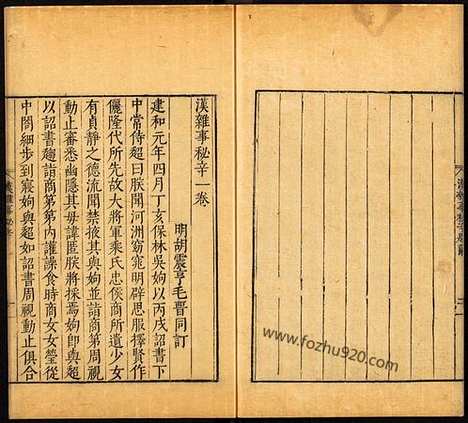 漢雜事秘辛一卷
明胡震亨毛晉同訂
建和元年四月丁亥保林吳姁以丙戌詔書下
中常侍超曰朕聞河洲窈窕明辟思服擇賢作
儷隆代所先故大將軍乘氏忠侯商所遺少女
有貞靜之德流聞禁掖其與姁並詣商第周視
動止審悉幽隱其毋諱匿朕將採焉姁卽與超
以詔書趨詣商第第內讙譟食時商女女瑩從
中閤細步到寢姁與超如詔書周視動止俱合
漢雜事秘辛
www.fozhu920.com